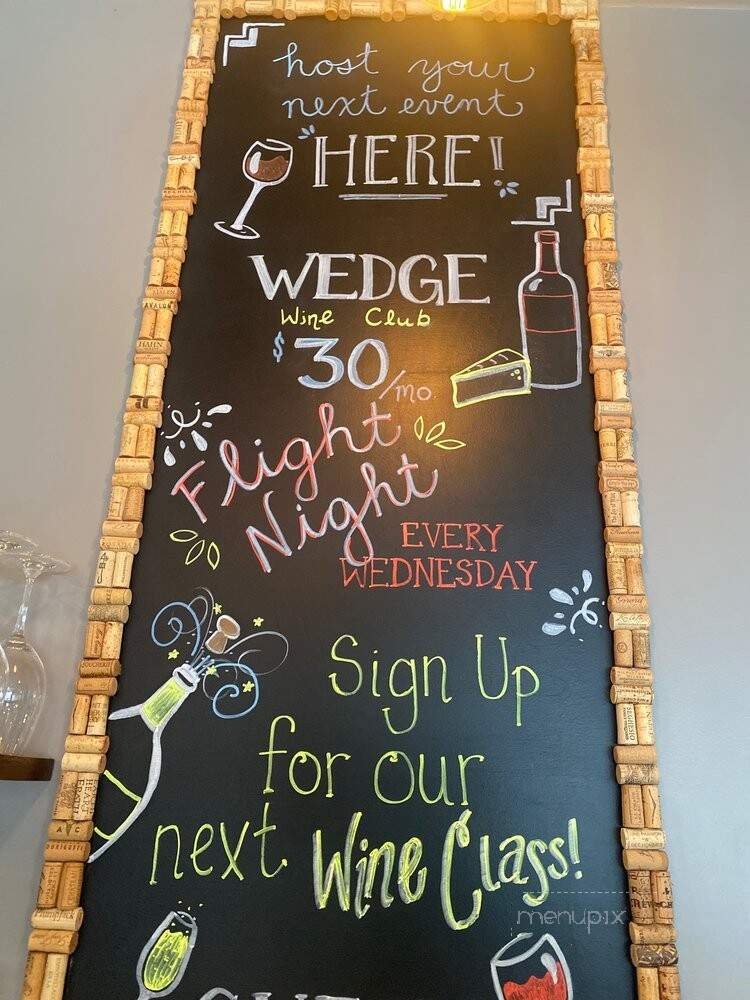 host your
next event
HERE!
WEDGE
Wine Club
$30/mo
Flight
Night
EVERY
WEDNESDAY
Sign Up
for our
next Wine Class!
menupix